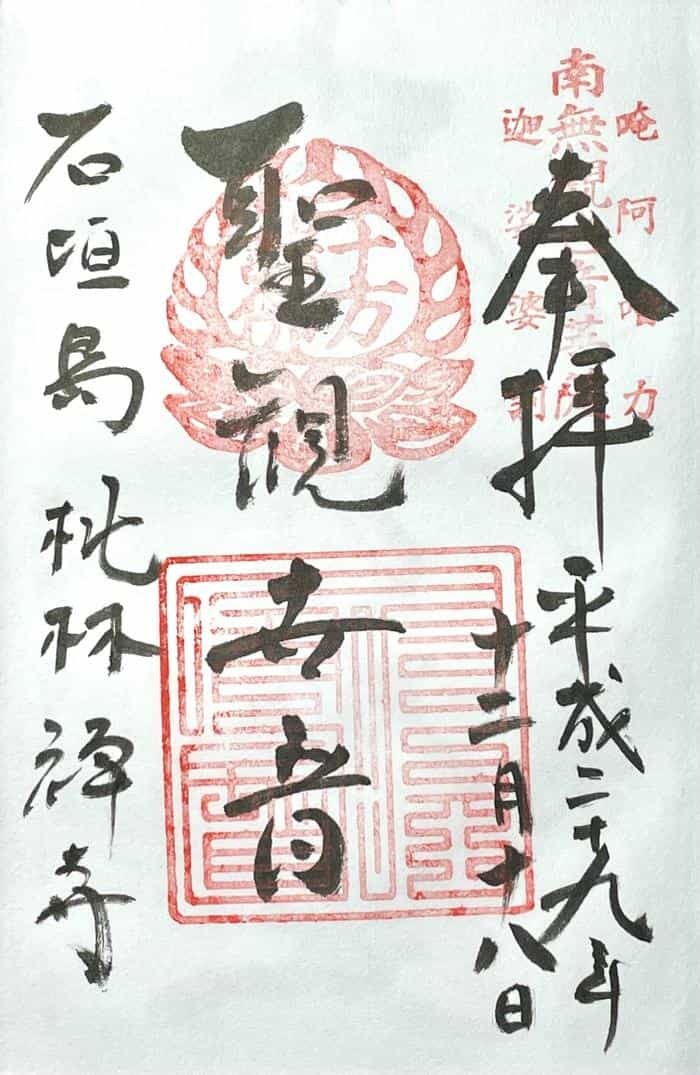 奉拝
平成二十九年
十二月十八日
聖観世音
石垣島 桃林禅寺
南無観世音菩薩
唵阿嚕力
迦娑婆訶
十方